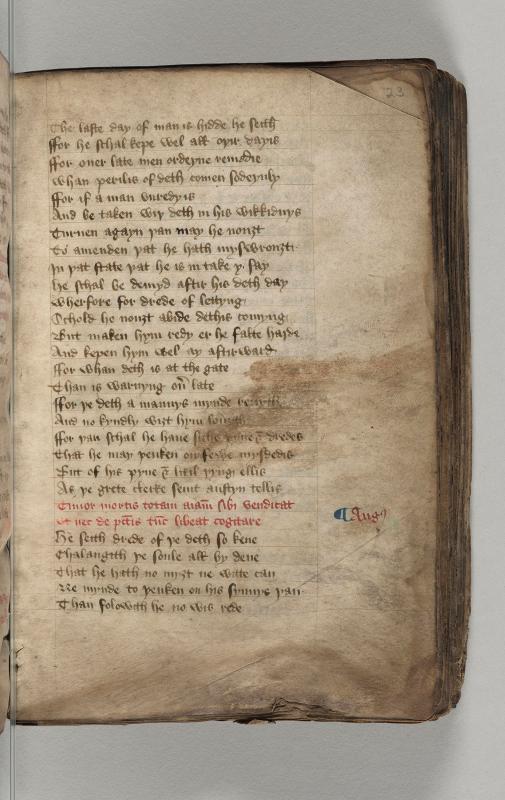 23
The laste day of man is hidde he seith
ffor he schal kepe wel all oyir dayis
ffor ouer late men ordeyne remedie
whan perilis of deth comen sodeynly
ffor if a man vnredy is
And be taken wiy deth in his wikkidnys
Turnen agayn yan may he nouȝt
To amenden yat he hath myswrouȝt
In yat state yat he is in take y say
he schal be demyd aftir his deth day
wherfore for drede of lettyng
Schold he nouȝt abide dethis comyng
But maken hym redy er he falle harde
And kepen hym wel ay aftirward
ffor whan deth is at the gate
Than is warnyng ou͞ late
ffor ye deth a mannys mynde
And no kyndly wiȝt hym
ffor yan schal he haue siche pyne & dredes
That he may yenken on fewe mysdedis
But of hys pyne & litil yyng ellis
As ye grete clerke seint austyn tellis
Timor mortis totam aīam sibi vendicat
vt nec de pctīs tūc libeat cogitare
¶ Augꝰ
He seith drede of ye deth so kene
Chalangith ye soule all by dene
That he hath no myȝt ne witte can
To mynde to yenken on his synnys yan
Than folowith he no wis rede